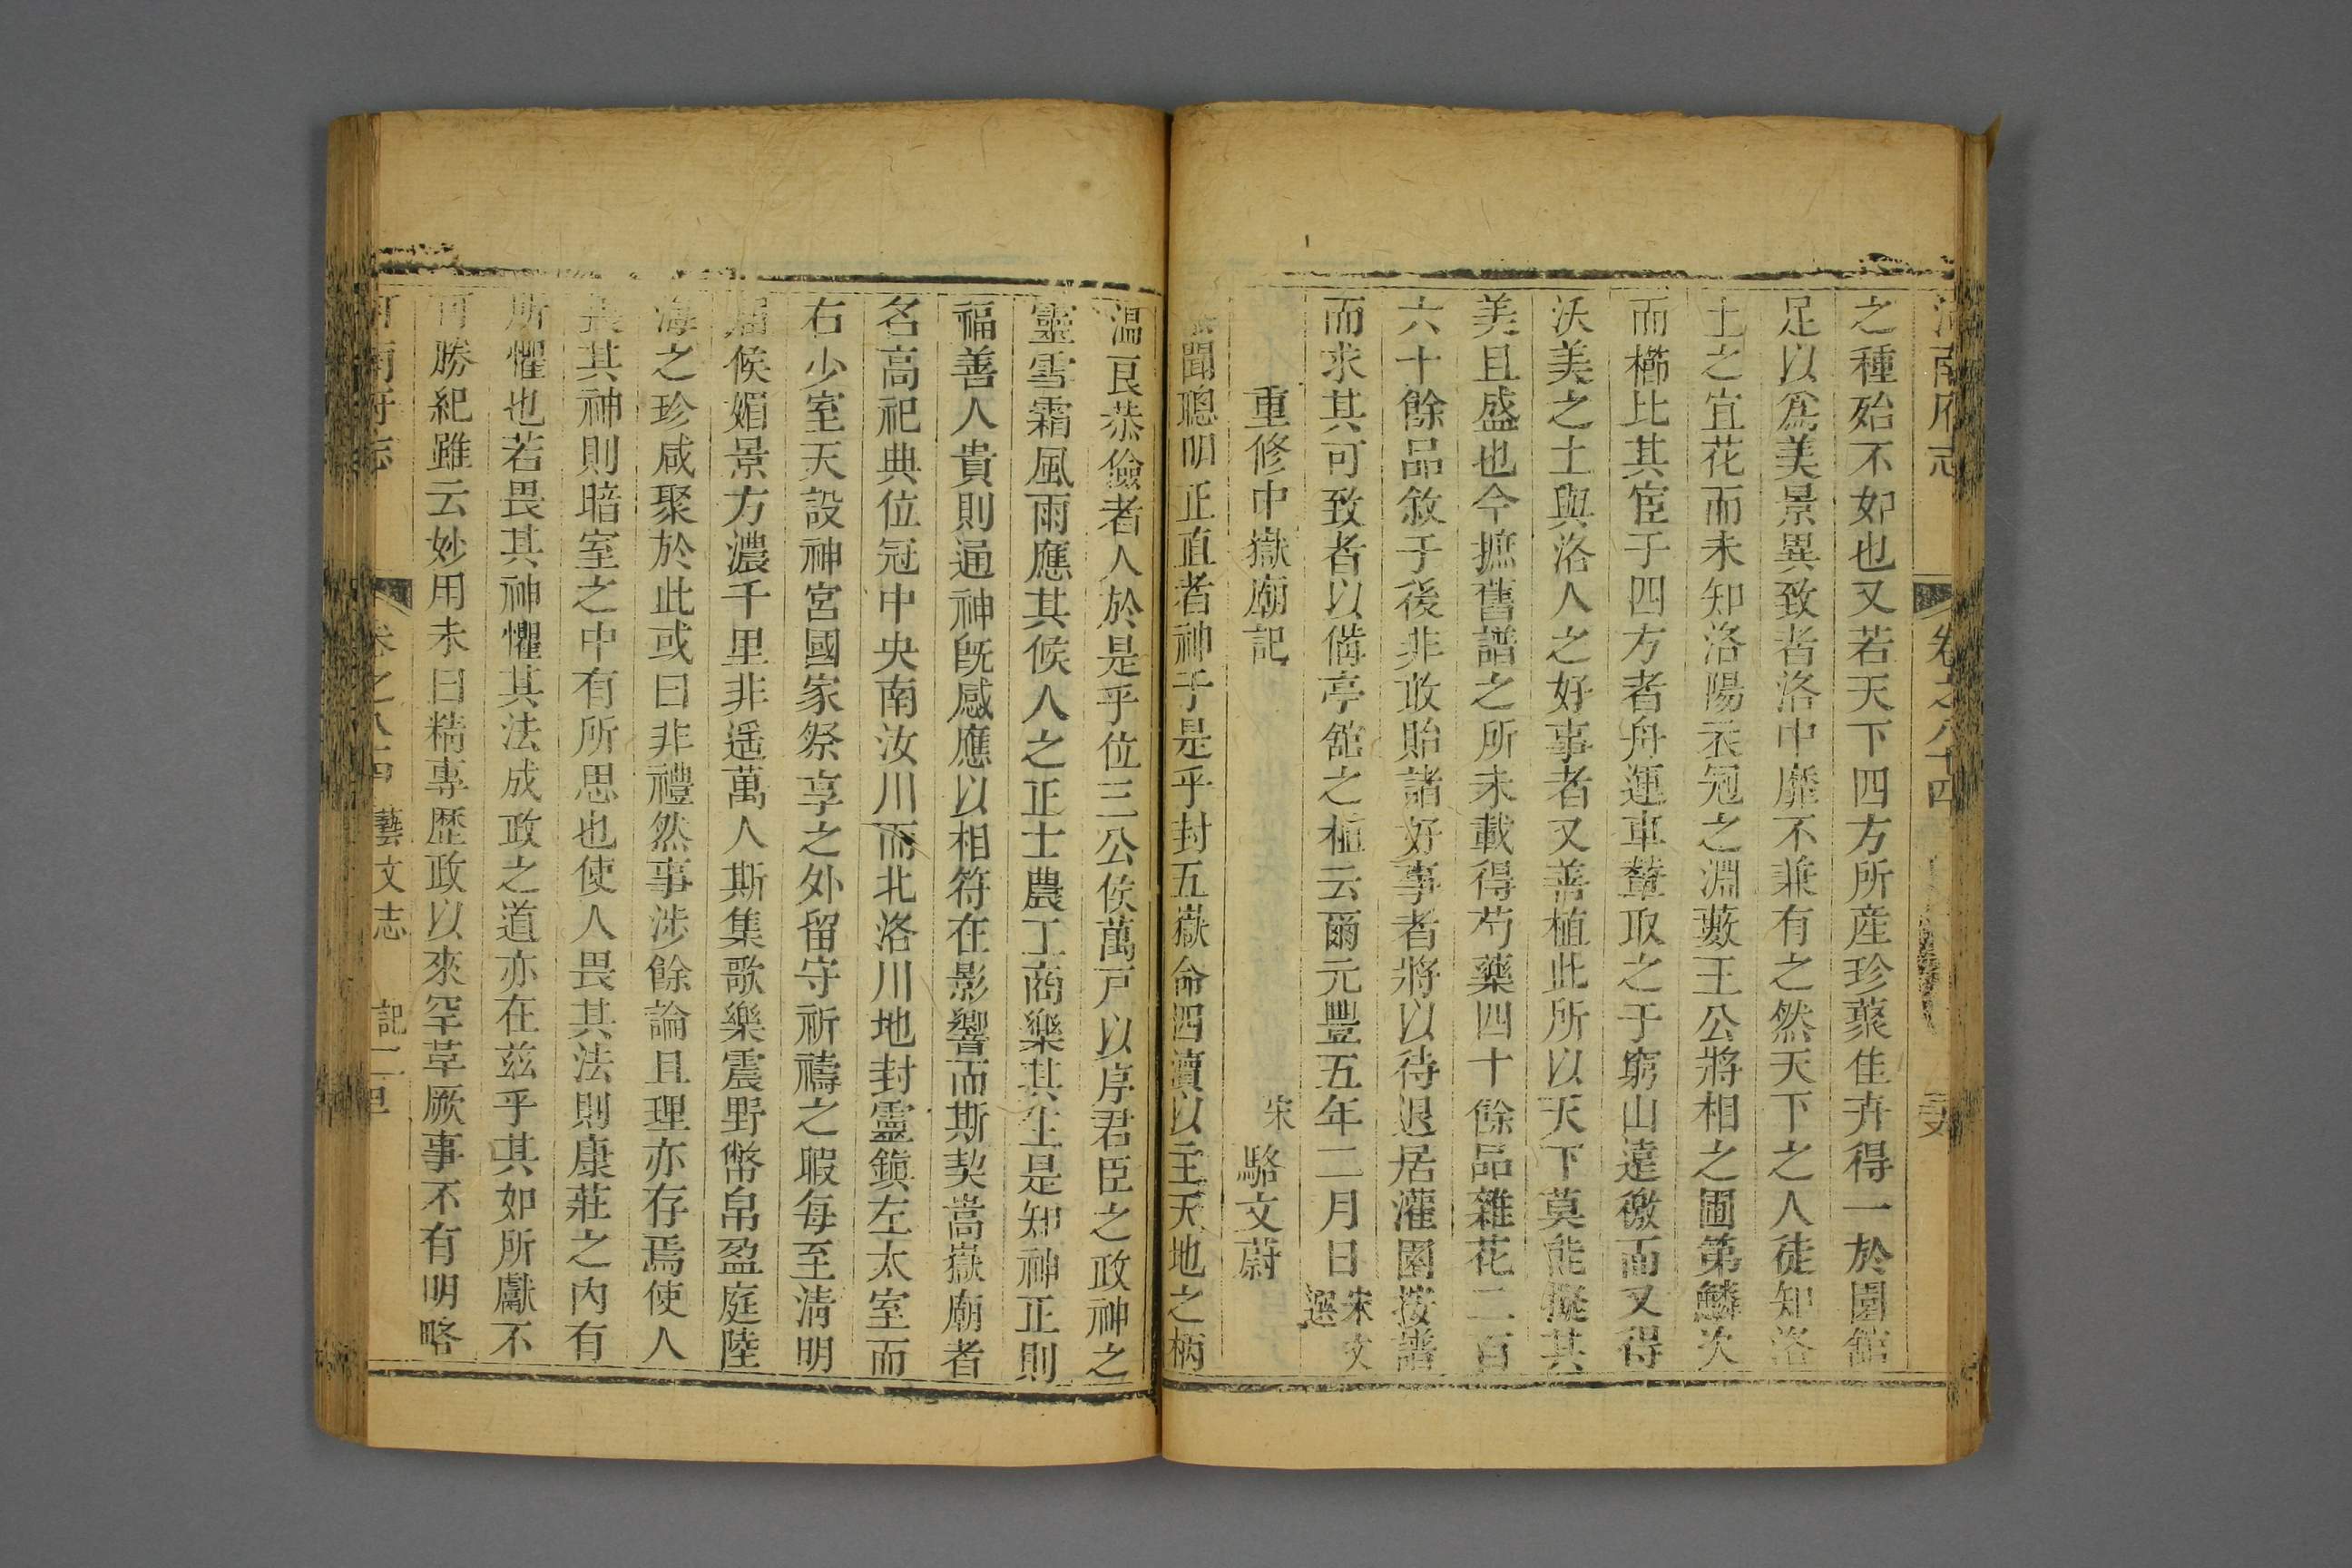 河南府志 卷之八十四
之種殆不如也又若天下四方所產珍蘂佳卉得一於園館
足以爲美景異致者洛中靡不兼有之然天下之人徒知洛
土之宜花而未知洛陽衣冠之淵藪王公將相之圃第鱗次
而櫛比其宦于四方者舟運車輦取之于窮山遠徼而又得
沃美之土與洛人之好事者又善植此所以天下莫能擬其
美且盛也今摭舊譜之所未載得芍藥四十餘品雜花二百
六十餘品敘于後非敢貽諸好事者將以待退居灌園按譜
而求其可致者以備亭舘之植云爾元豐五年二月日宋文選
重修中嶽廟記 宋 駱文蔚
聞聰明正直者神于是乎封五嶽命四瀆以主天地之柄
溫良恭儉者人於是乎位三公侯萬戸以序君臣之政神之
靈雪霜風雨應其候人之正士農工商樂其生是知神正則
福善人貴則通神旣感應以相符在影響而斯契嵩嶽廟者
名高祀典位冠中央南汝川而北洛川地封靈鎭左太室而
右少室天設神宮國家祭享之外留守祈禱之暇每至清明
屆候媚景方濃千里非遥萬人斯集歌樂震野幣帛盈庭陸
海之珍咸聚於此或曰非禮然事涉餘論且理亦存焉使人
畏其神則暗室之中有所思也使人畏其法則康莊之內有
所懼也若畏其神懼其法成政之道亦在兹乎其如所獻不
可勝紀雖云妙用未曰精專歴政以來罕革厥事不有明略
河南府志 卷之八十四 藝文志 記二